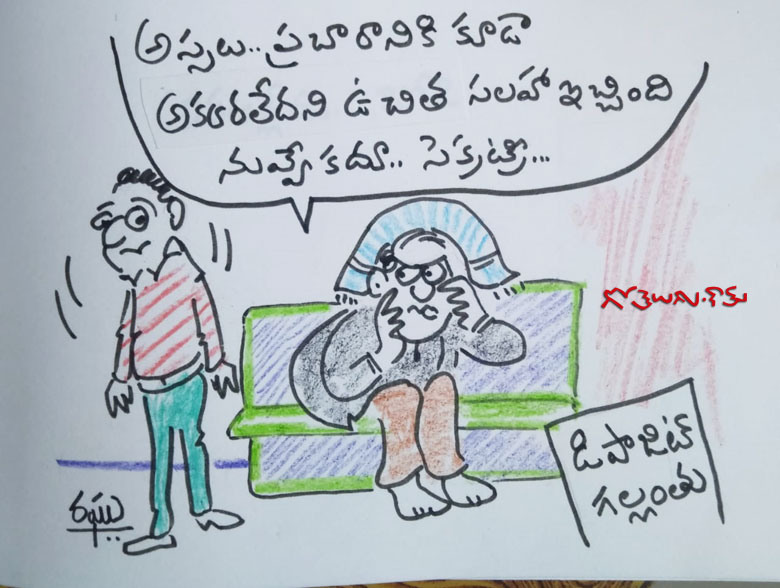 అస్సలు.. ప్రచారానికి కూడా
అకఱరలేదని ఉచిత సలహా ఇచ్చింది
నువ్వే కదూ.. సెక్రట్రీ...
గోతెలుగు.కాకు
డిపాజిట్
గల్లంతు
రఘు